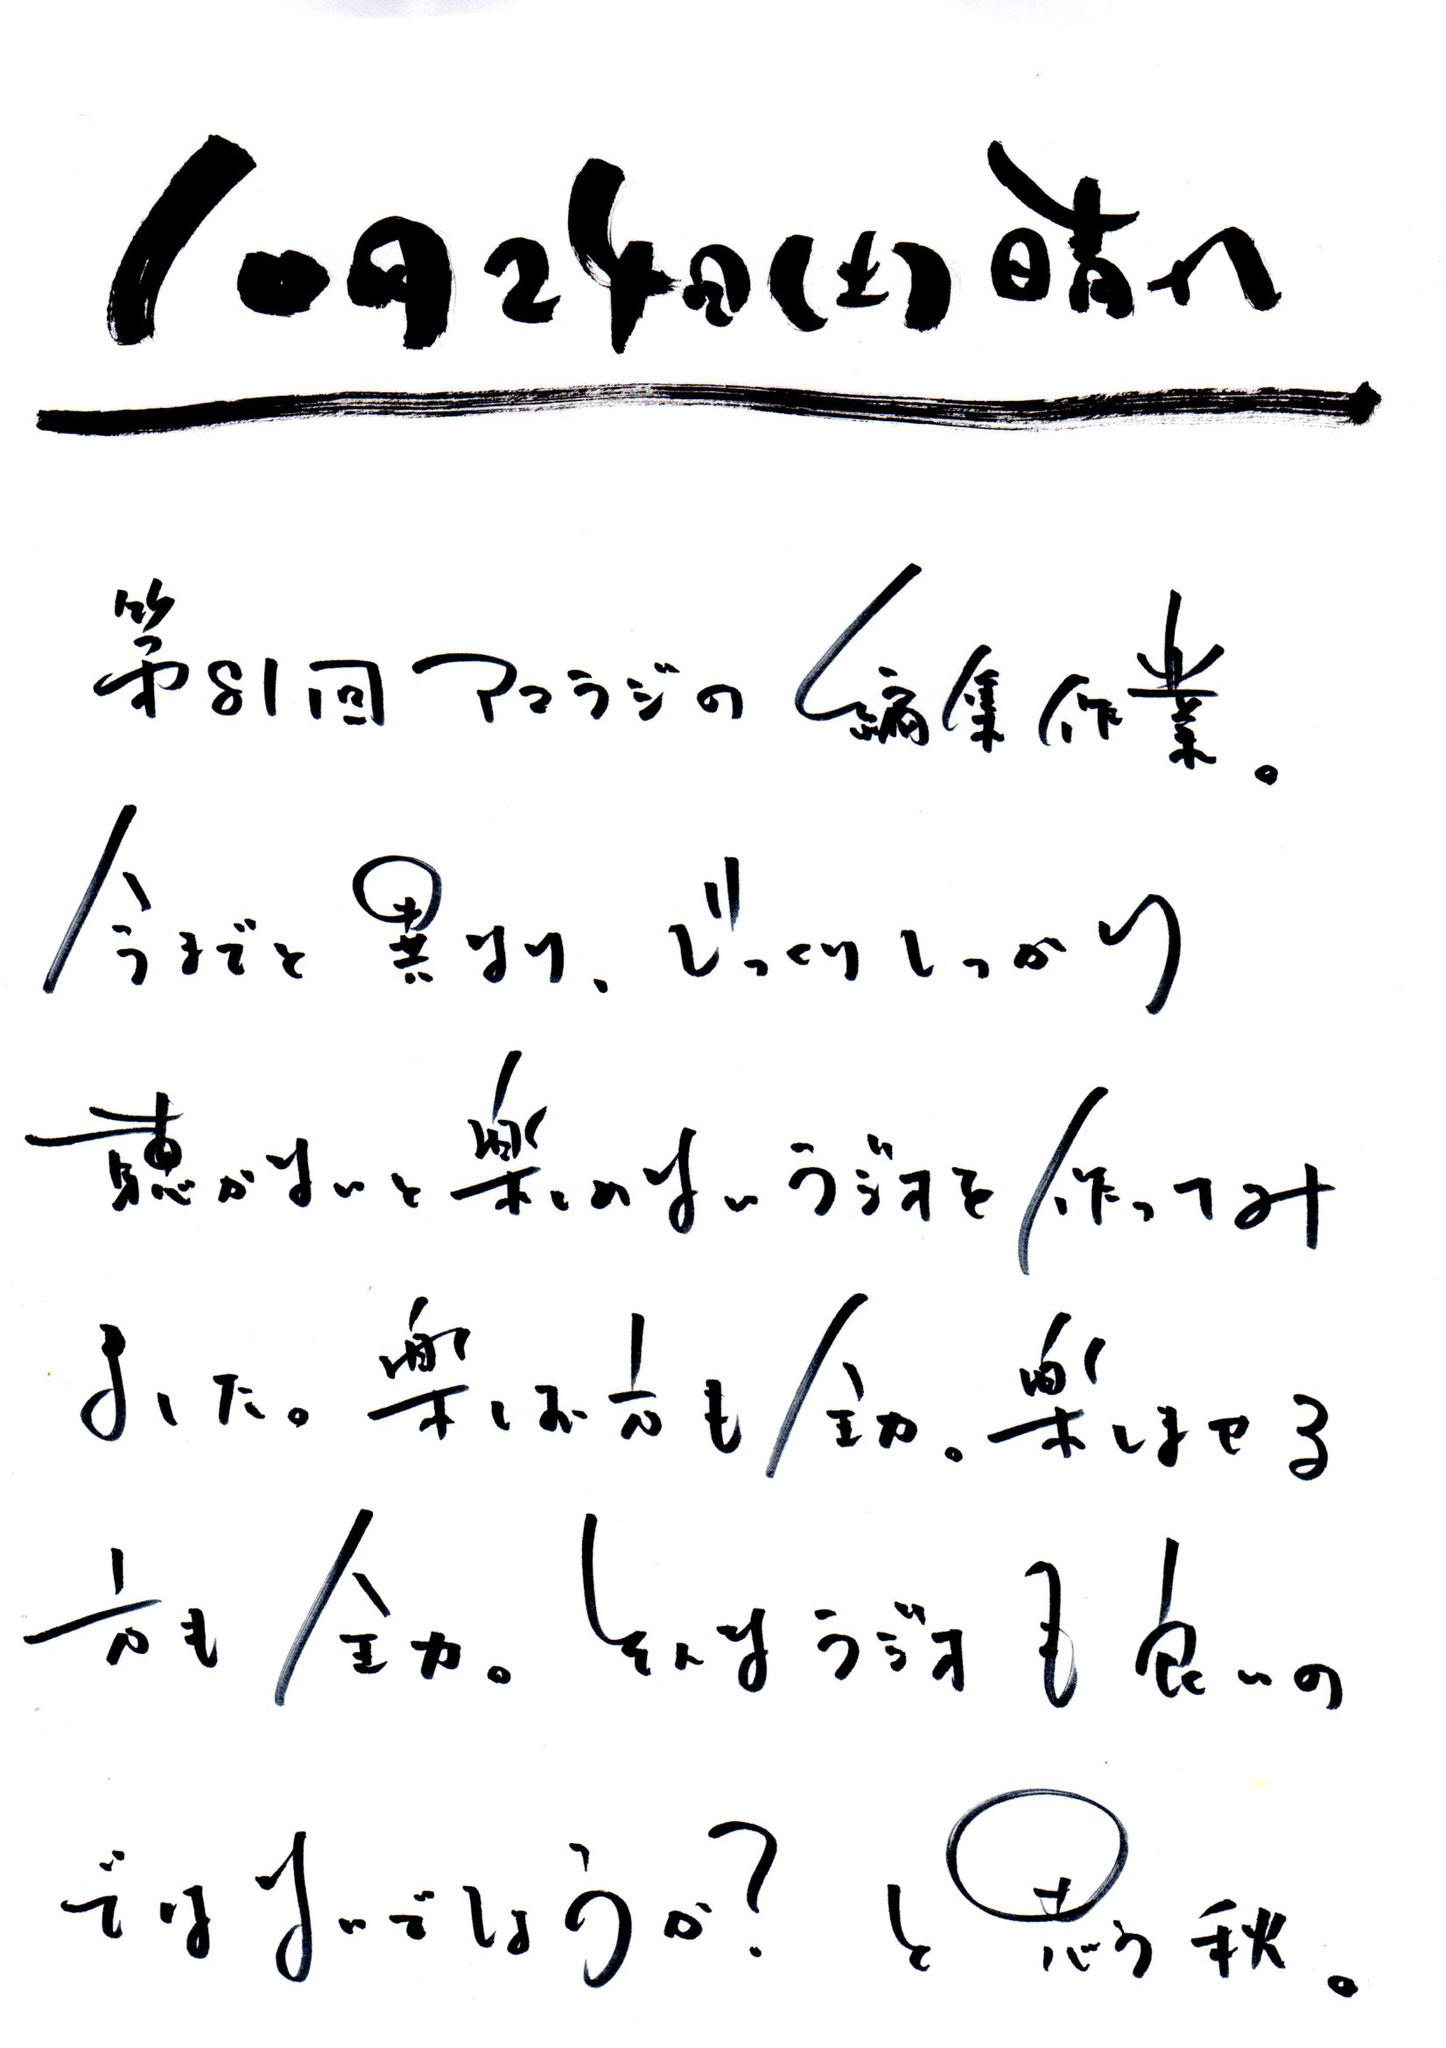 10月24日(土)晴れ
第81回アコラジの編集作業。
今までと異なり、じっくりしっかり
聴かないと楽しめないラジオを作ってみ
ました。楽しむ方も全力。楽しませる
方も全力。そんなラジオも良いの
ではないでしょうか？と思う秋。